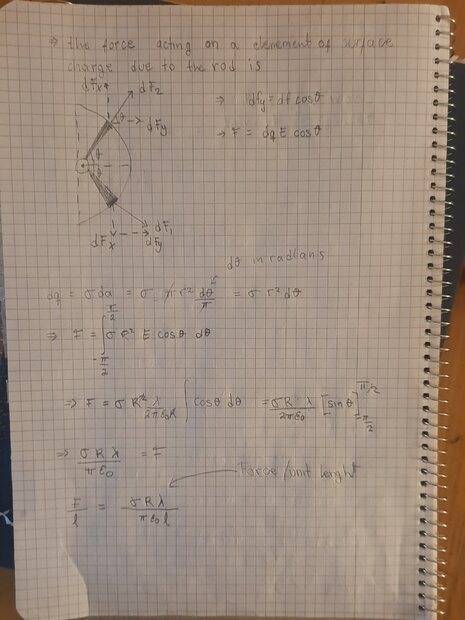 ⇒ the force acting on a element of surface
charge due to the rod is
dFx dF2
⇒ dFy = dF cosθ
θ dFy
→ F = dq E cosθ
θ
θ
dF1
dFx dFy
dθ in radians
dq = σ da = σ π r² dθ/π = σ r² dθ
⇒ F = ∫_{-π/2}^{π/2} σ R² E cosθ dθ
⇒ F = σ R² λ/2πε0R ∫ cosθ dθ = σRλ/2πε0 [sinθ]_{-π/2}^{π/2}
⇒ σRλ/πε0 = F
Force/unit lenght
F/l = σRλ/πε0l